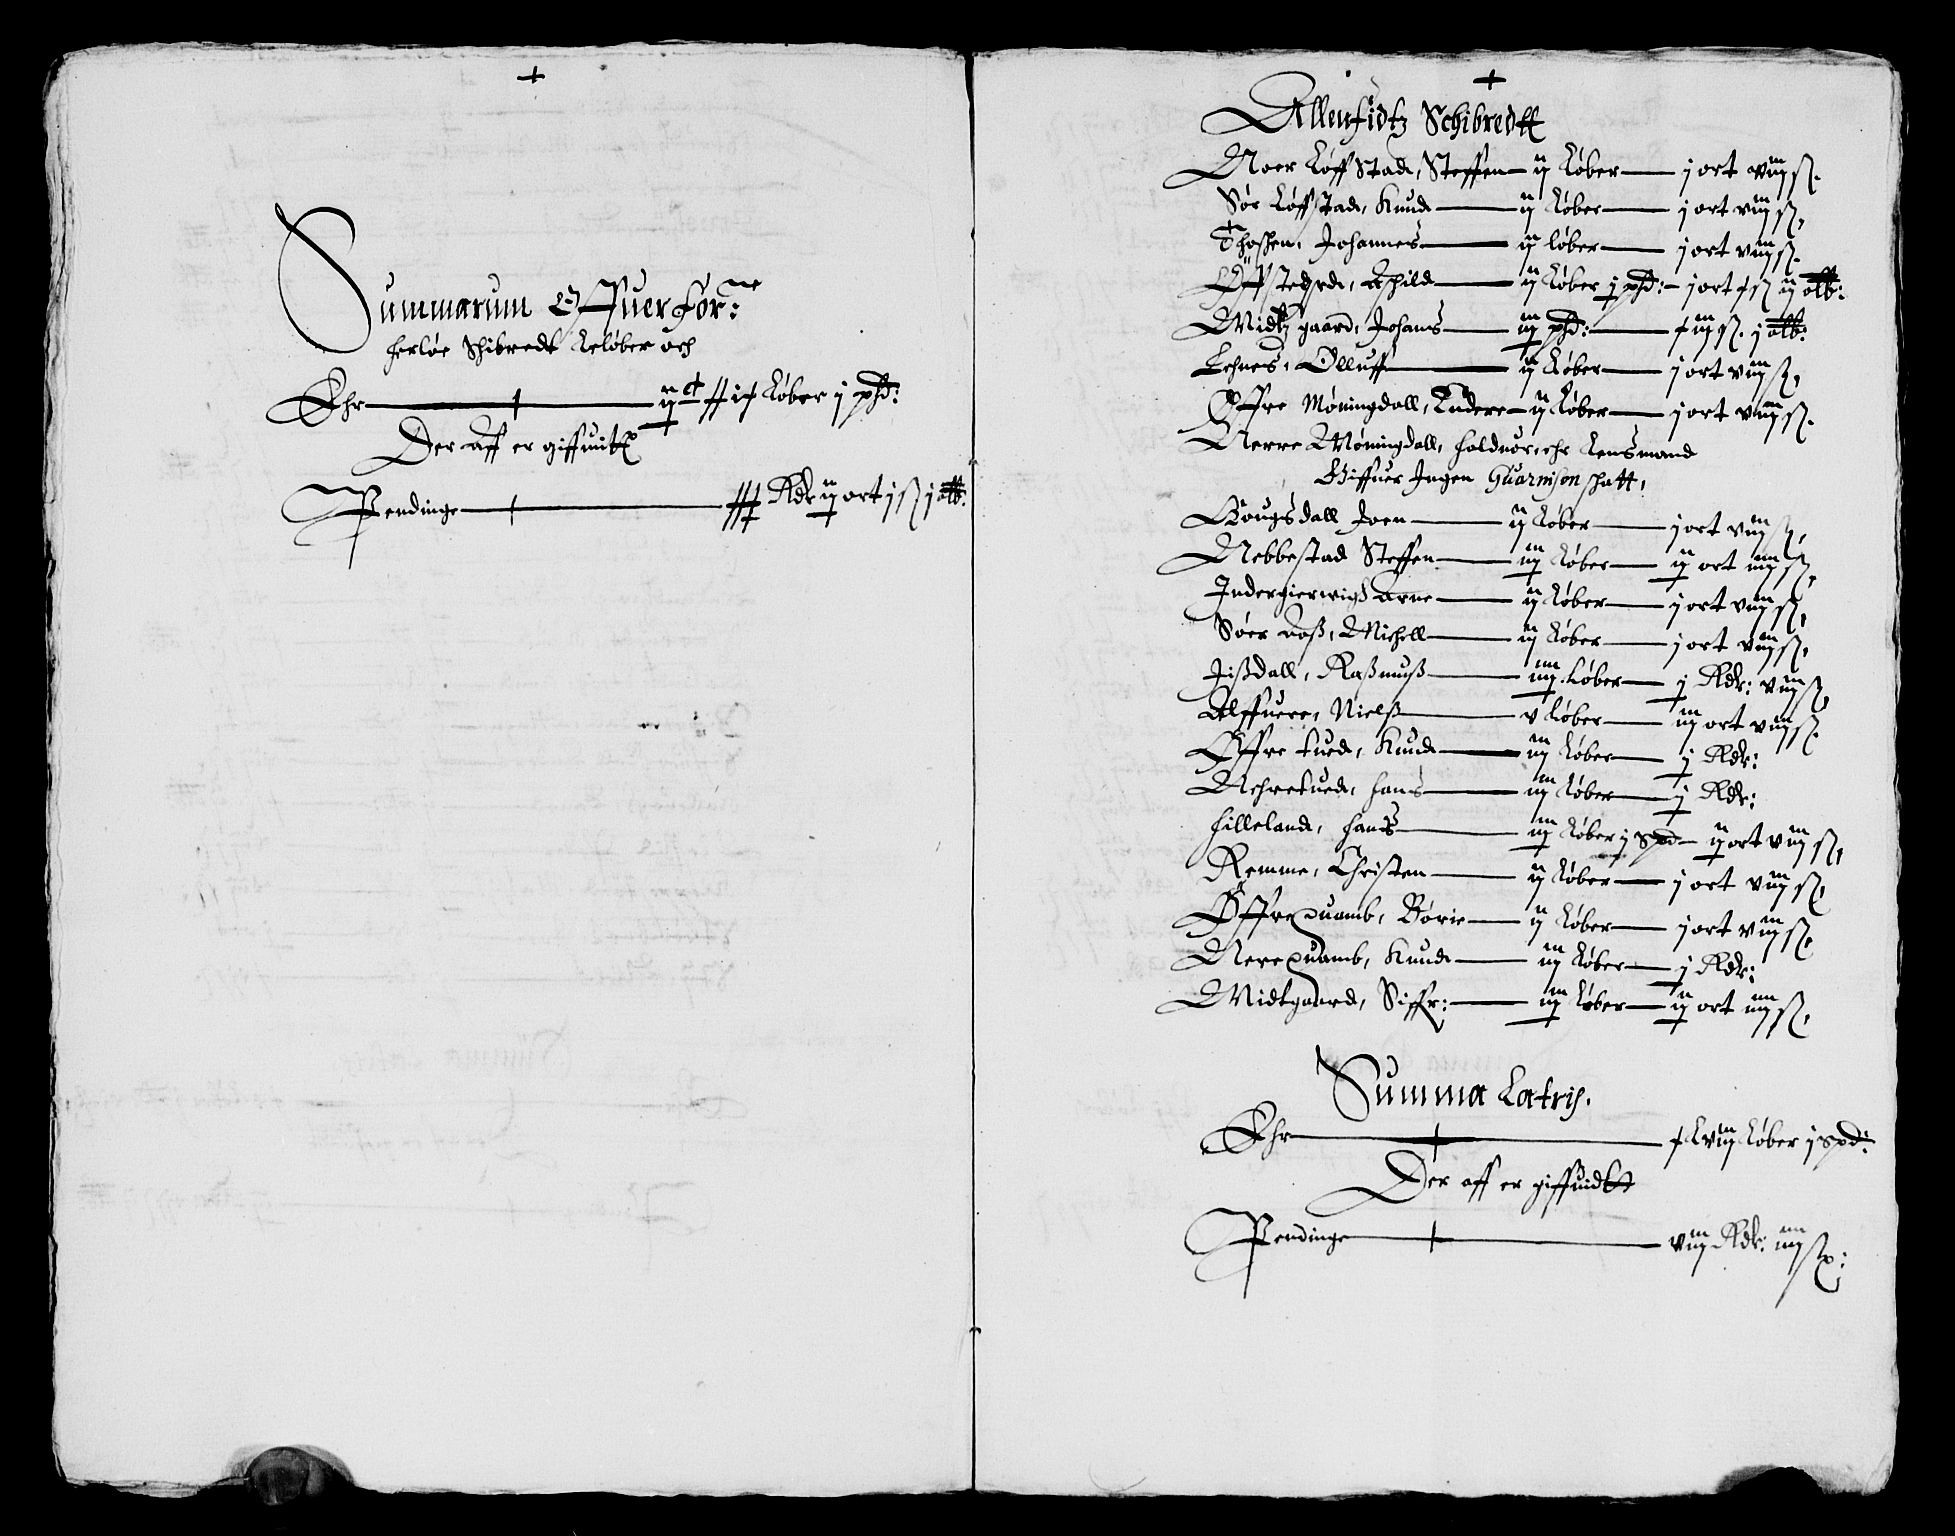 Summarum Offuer for:ne
Herløe Schibredt Leløber och
Ehr løber j phd:
Der aff er giffuitt
Pendinge Rdr ij ort j ß j alb:
Allenfidtz Schibredtt
Noer Løffstad, Steffen ij Løber j ort viij ß.
Sør Løffstad, Knud ij Løber j ort viij ß,
Thoshen, Johannes ij løber j ort viij ß.
Øffstegrd, Eschild ij Løber j phd: j ort ß ij alb:
Midtgaard, Johans iij phd: ß. j alb:
Lehnes, Olluff ij Løber j ort viij ß,
Øffre Møningdall, Endere ij Løber j ort viij ß.
Nerre Møningdall, Haldvor, ehr Lensmand
Giffuer Ingen Guarnison schatt,
Gougsdall Joen ij Løber j ort viij ß,
Nebbestad Steffen iij Løber ij ort iiij ß,
Indergierwigh Arne ij Løber j ort viij ß,
Søer Aaß, Michell ij Løber j ort viij ß,
Jißdall, Raßmuß iiij Løber j Rdr: viij ß,
Alffuere, Nielß v Løber iij ort viij ß.
Øffre tued, Knud iij Løber j Rdr:
Nehretued, Hans iij Løber j Rdr:
Hilleland, Hans iij Løber j spd ij ort viij ß,
Remme, Christen ij Løber j ort viij ß,
Øffrequamb, Børie ij Løber j ort viij ß,
Nerequamb, Knud iij Løber j Rdr:
Midtgaard, Siffr: iij Løber ij ort iiij ß,
Summa Latris.
Ehr Lviij Løber j spd:
Der aff er giffuidtt
Pendinge viij Rdr: iiij ß: